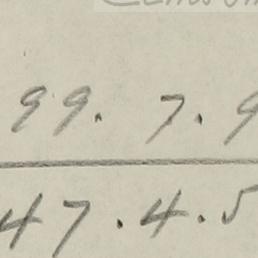 99. 7. 9
47. 4. 5